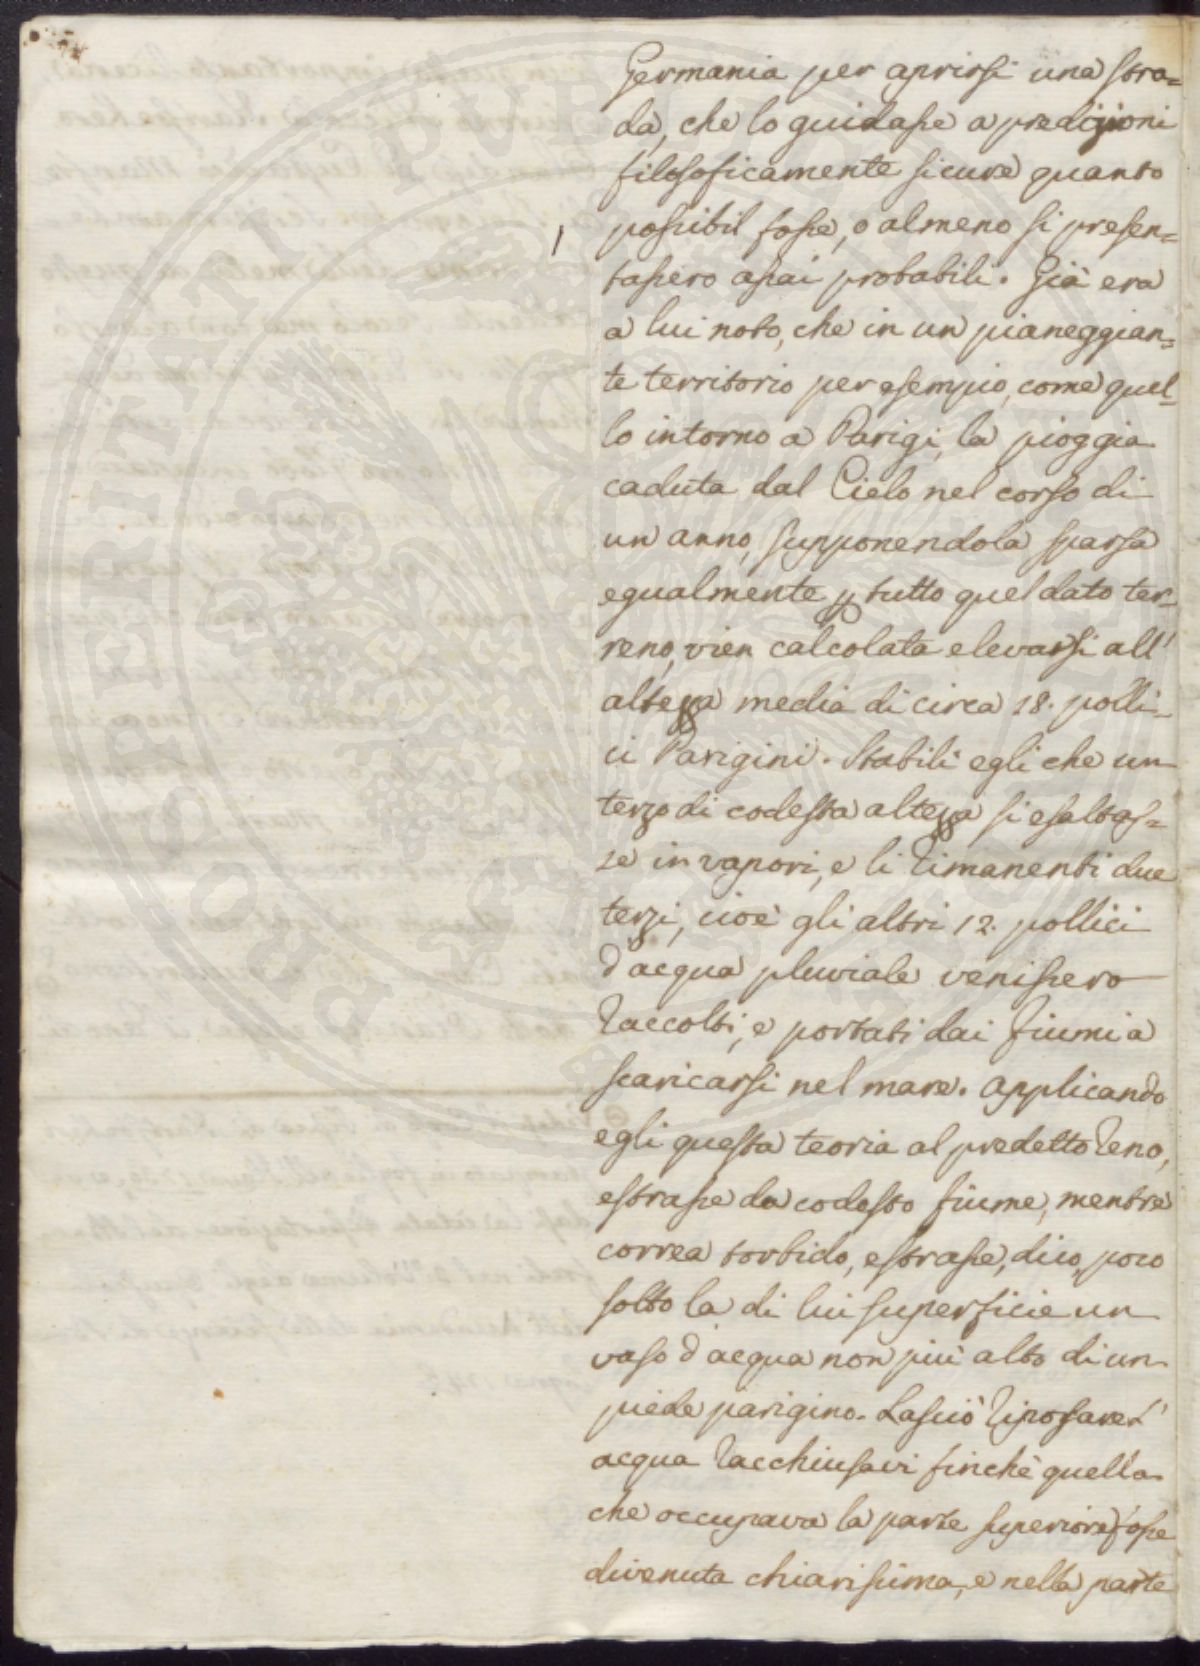 Germania per aprirsi una stra=
da, che lo guidasse a predizioni
filosoficamente sicure quanto
possibil fosse, o almeno si presen=
tassero assai probabili. Già era
a lui noto, che in un pianeggian=
te territorio per esempio, come quel=
lo intorno a Parigi, la pioggia
caduta dal Cielo nel corso di
un anno, supponendola sparsa
egualmente p tutto quel dato ter=
reno, vien calcolata elevarsi all'
altezza media di circa 18. polli=
ci Parigini. Stabilì egli che un
terzo di codesta altezza si esaltas=
se in vapori, e li rimanenti due
terzi, cioè gli altri 12. pollici
d'acqua pluviale venissero
raccolti, e portati dai fiumi a
scaricarsi nel mare. Applicando
egli questa teoria al predetto Reno,
estrasse da codesto fiume, mentre
correa torbido, estrasse, dico, poco
sotto la di lui superficie un
vaso d'acqua non più alto di un
piede parigino. Lasciò riposare l'
acqua racchiusavi finchè quella
che occupava la parte superiore fosse
divenuta chiarissima, e nella parte
PROSPERITATI PUBLICAE